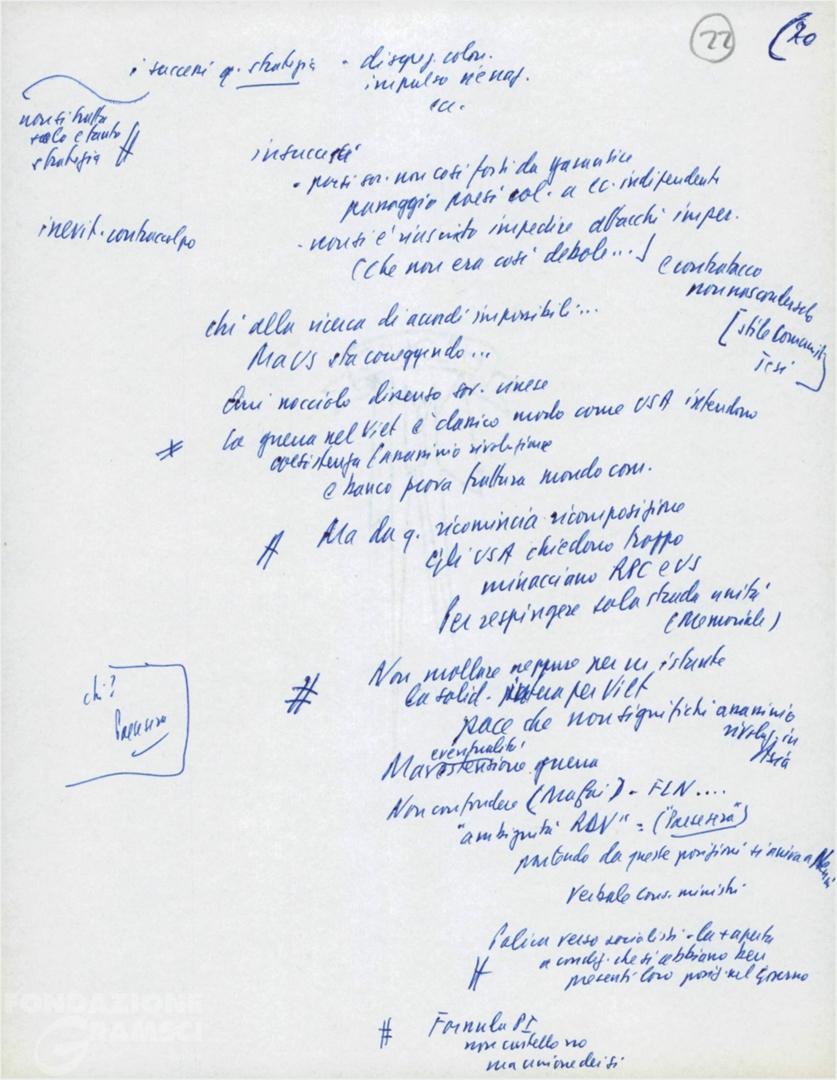 22
(20
i successi q. strategia - disgreg. colon.
impulso
ecc.
non si tratta
solo e tanto
strategia #
insuccessi
- paesi soc. non così forti da garantire
passaggio paesi col. a ec. indipendente
inevit. contraccolpo
- non si è riusciti impedire attacchi imper.
(che non era così debole...)
e contrattacco
non nasconderselo
[stile comunisti
chi alla ricerca di accordi impossibili...
Ma US sta correggendo...
Qui nocciolo dissenso sov. cinese
* la guerra nel Viet è classico modo come USA intendono
coesistenza l'assassinio rivoluzione
e banco prova frattura mondo com.
# Ma da q. ricomincia ricomposizione
gli USA chiedono troppo
minacciano RPC e US
Per respingere sola strada unità
(Memoriale)
chi?
# Non mollare neppure per un istante
la solid. per Viet
pace che non significhi assassinio
rivoluz. in
Asia
eventualità
Ma estensione guerra
Non confondere (Maffei) - FLN ....
"ambiguità RDV" =
partendo da queste posizioni si arriva a Nenni
Verbale cons. ministri
verso socialisti - la + aperta
# a condiz. che si abbiano ben
presenti loro posiz. nel governo
# Formula PI
non cartello no
ma unione dei sì
FONDAZIONE
GRAMSCI